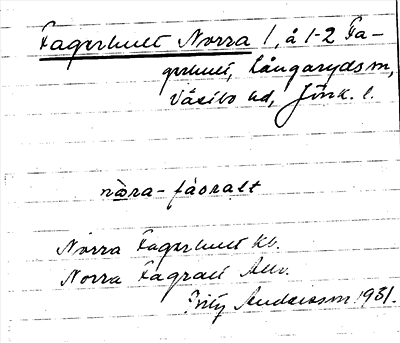 Fagerhult Norra 1, å 1-2 Fa-
gerhult, Långaryds sn,
Västbo hd, Jönk. l.
nòra-fáoralt
Norra Fagerhult Kb.
Norra Fagralt Allm.
Fritz Andersson 1931.